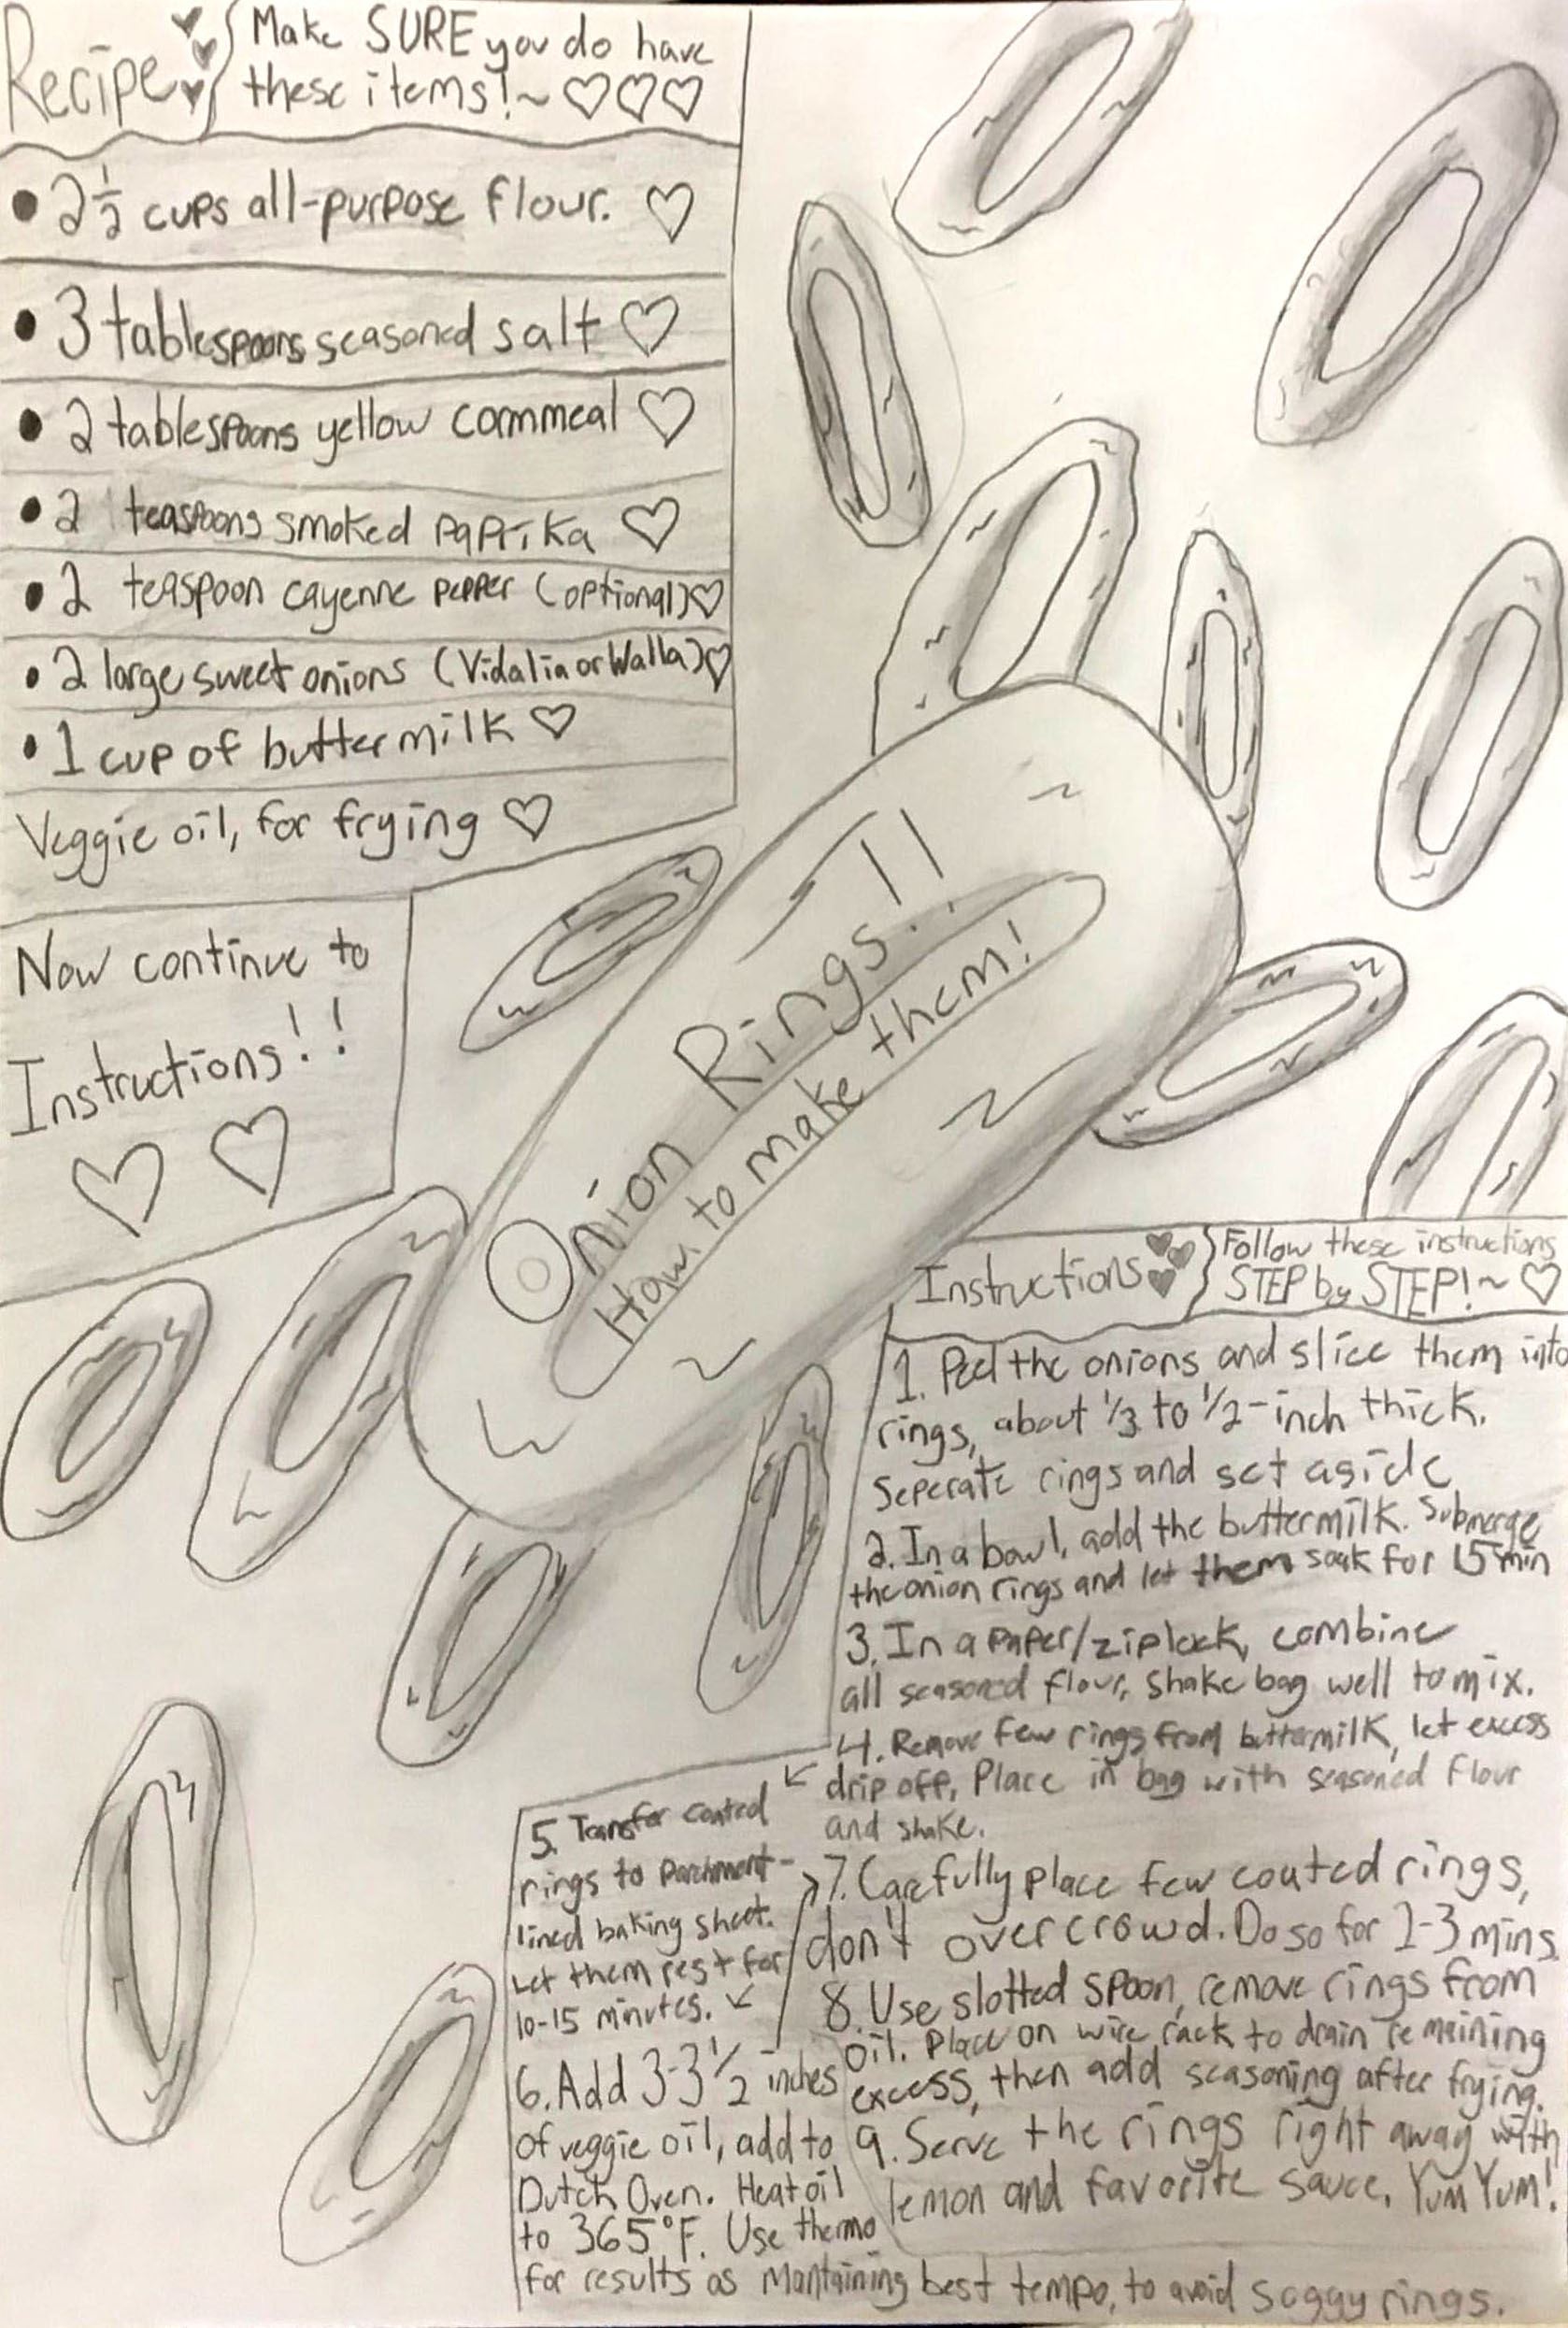 Recipe
Make SURE you do have
these items!~ ♡♡♡
• 2 1/2 cups all-purpose flour. ♡
• 3 tablespoons seasoned salt ♡
• 2 tablespoons yellow cornmeal ♡
• 2 teaspoons smoked paprika ♡
• 2 teaspoon cayenne pepper (optional) ♡
• 2 large sweet onions (Vidalia or Walla) ♡
• 1 cup of buttermilk ♡
Veggie oil, for frying ♡
Now continue to
Instructions!!
♡ ♡
Onion Rings!!
How to make them!
Instructions
Follow these instructions
STEP by STEP!~ ♡
1. Peel the onions and slice them into
rings, about 1/3 to 1/2-inch thick.
Seperate rings and set aside
2. In a bowl, add the buttermilk. Submerge
the onion rings and let them soak for 15 min
3. In a paper/ziplock, combine
all seasoned flour, shake bag well to mix.
4. Remove few rings from buttermilk, let excess
drip off, Place in bag with seasoned flour
and shake.
5. Transfer coated
rings to parchment-
lined baking sheet.
Let them rest for
10-15 minutes.
6. Add 3-3 1/2 inches
of veggie oil, add to
Dutch Oven. Heat oil
to 365°F. Use thermo
for results as mantaining best tempo, to avoid soggy rings.
7. Carefully place few coated rings,
don't overcrowd. Do so for 2-3 mins.
8. Use slotted spoon, remove rings from
oil. Place on wire rack to drain remaining
excess, then add seasoning after frying.
9. Serve the rings right away with
lemon and favorite sauce. Yum Yum!